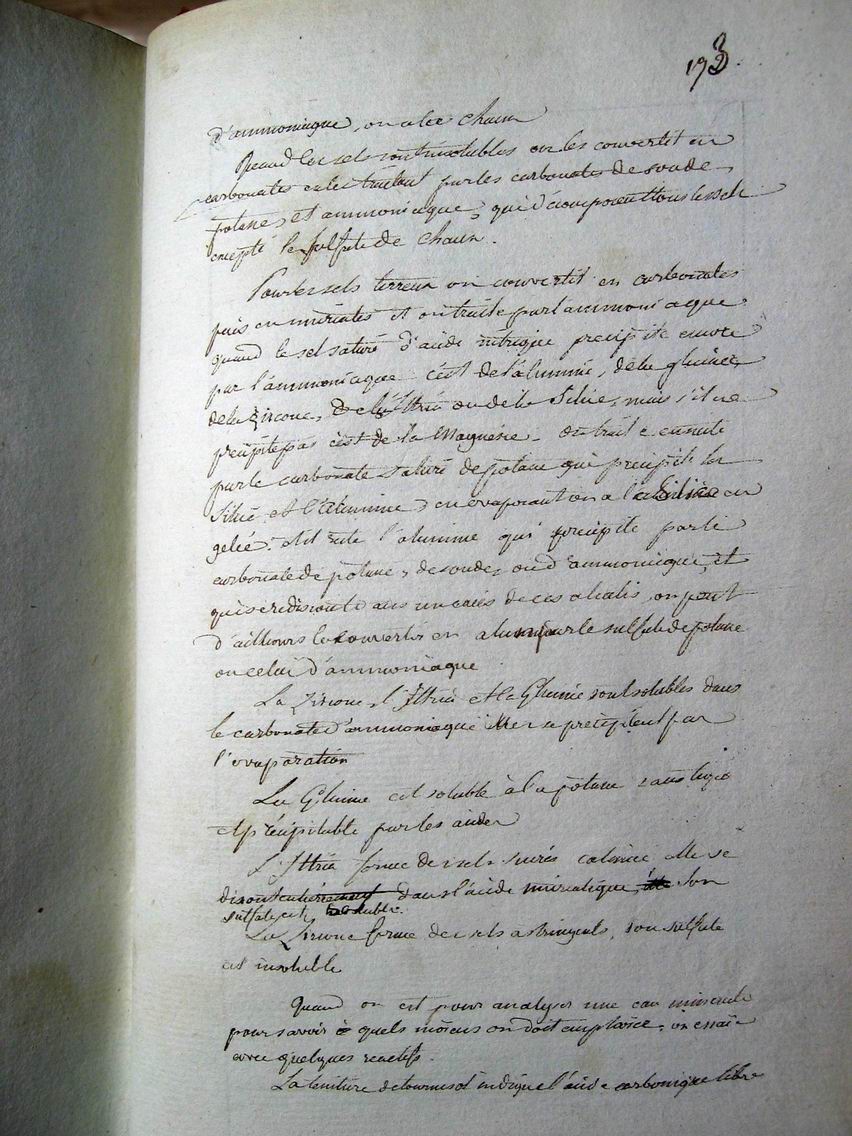 193.
d'ammoniaque, on a le chaux
Quand les sels sont insolubles on les convertit en
carbonates en les traitant par les carbonates de soude,
potasse, et ammoniaque, qui décomposent tous les sels
excepté le sulfate de chaux.
Pour les sels terreux on convertit en carbonates
puis en muriates et on traite par l'ammoniaque
quand le sel saturé d'acide nitrique precipite encore
par l'ammoniaque c'est de l'alumine, de la glucine,
de la zircone, de l'Ittria ou de la Silice, mais s'il ne
precipite pas c'est de la Magnésie. on traite ensuite
par le carbonate saturé de potasse qui precipite la
Silice et l'alumine, en evaporant on a la Silice en
gelée. Il reste l'alumine qui precipite par le
carbonate de potasse, de soude, ou d'ammoniaque, et
qui se redissout dans un excès de ces alcalis, on peut
d'ailleurs le convertir en alun par le sulfate de potasse
ou celui d'ammoniaque
La Zircone, l'Ittria et la Glucine sont solubles dans
le carbonate d'ammoniaque et se precipitent par
l'evaporation
La Glucine est soluble à la potasse sans
et précipitable par les acides
L'Ittria forme des sels sucrés calcinée elle se
dissout dans l'acide muriatique, son
sulfate est
La Zircone forme des sels astringents, son sulfate
est insoluble
Quand on est pour analyser une eau minerale
pour savoir à quels moiens on doit emploier, on essaie
avec quelques reactifs.
La teinture de tournesol indique l'acide carbonique libre